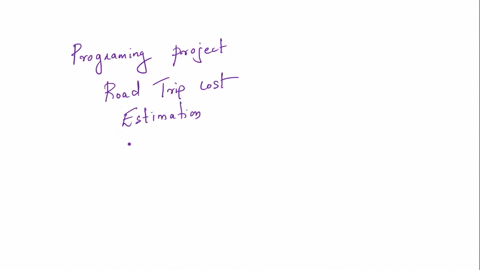 Programing project
Road Trip cost
Estimation